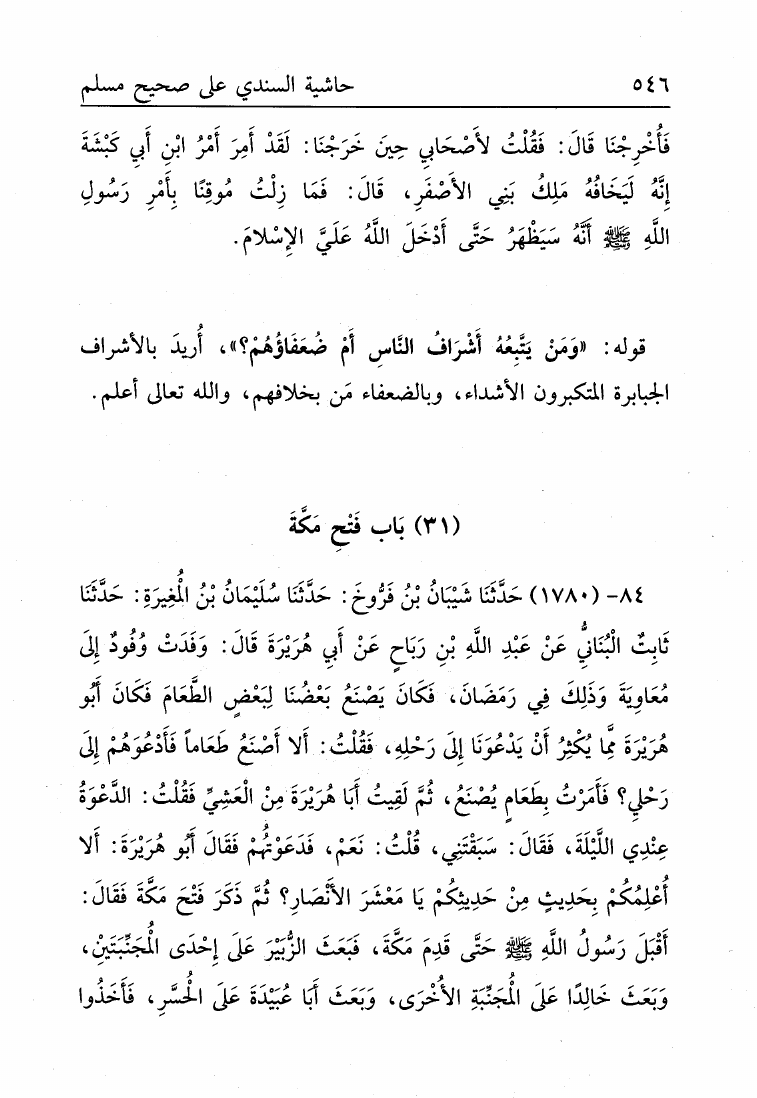 ٥٤٦ حاشية السندي على صحيح مسلم
فَأُخْرِجْنَا قَالَ: فَقُلْتُ لأَصْحَابِي حِينَ خَرَجْنَا: لَقَدْ أَمِرَ أَمْرُ ابْنِ أَبِي كَبْشَةَ
إِنَّهُ لَيَخَافُهُ مَلِكُ بَنِي الأَصْفَرِ، قَالَ: فَمَا زِلْتُ مُوقِنًا بِأَمْرِ رَسُولِ
اللَّهِ ﷺ أَنَّهُ سَيَظْهَرُ حَتَّى أَدْخَلَ اللَّهُ عَلَيَّ الإِسْلامَ.
قوله: «وَمَنْ يَتَّبِعُهُ أَشْرَافُ النَّاسِ أَمْ ضُعَفَاؤُهُمْ؟»، أُريدَ بالأشراف
الجبابرة المتكبرون الأشداء، وبالضعفاء مَن بخلافهم، والله تعالى أعلم.
(٣١) بَاب فَتْحِ مَكَّةَ
٨٤- (١٧٨٠) حَدَّثَنَا شَيْبَانُ بْنُ فَرُّوخَ: حَدَّثَنَا سُلَيْمَانُ بْنُ الْمُغِيرَةِ: حَدَّثَنَا
ثَابِتٌ الْبُنَانِيُّ عَنْ عَبْدِ اللَّهِ بْنِ رَبَاحٍ عَنْ أَبِي هُرَيْرَةَ قَالَ: وَفَدَتْ وُفُودٌ إِلَى
مُعَاوِيَةَ وَذَلِكَ فِي رَمَضَانَ، فَكَانَ يَصْنَعُ بَعْضُنَا لِبَعْضٍ الطَّعَامَ فَكَانَ أَبُو
هُرَيْرَةَ مِمَّا يُكْثِرُ أَنْ يَدْعُوَنَا إِلَى رَحْلِهِ، فَقُلْتُ: أَلا أَصْنَعُ طَعَاماً فَأَدْعُوَهُمْ إِلَى
رَحْلِي؟ فَأَمَرْتُ بِطَعَامٍ يُصْنَعُ، ثُمَّ لَقِيتُ أَبَا هُرَيْرَةَ مِنْ الْعَشِيِّ فَقُلْتُ: الدَّعْوَةُ
عِنْدِي اللَّيْلَةَ، فَقَالَ: سَبَقْتَنِي، قُلْتُ: نَعَمْ، فَدَعَوْتُهُمْ فَقَالَ أَبُو هُرَيْرَةَ: أَلا
أُعْلِمُكُمْ بِحَدِيثٍ مِنْ حَدِيثِكُمْ يَا مَعْشَرَ الأَنْصَارِ؟ ثُمَّ ذَكَرَ فَتْحَ مَكَّةَ فَقَالَ:
أَقْبَلَ رَسُولُ اللَّهِ ﷺ حَتَّى قَدِمَ مَكَّةَ، فَبَعَثَ الزُّبَيْرَ عَلَى إِحْدَى الْمُجَنِّبَتَيْنِ،
وَبَعَثَ خَالِدًا عَلَى الْمُجَنِّبَةِ الأُخْرَى، وَبَعَثَ أَبَا عُبَيْدَةَ عَلَى الْحُسَّرِ، فَأَخَذُوا